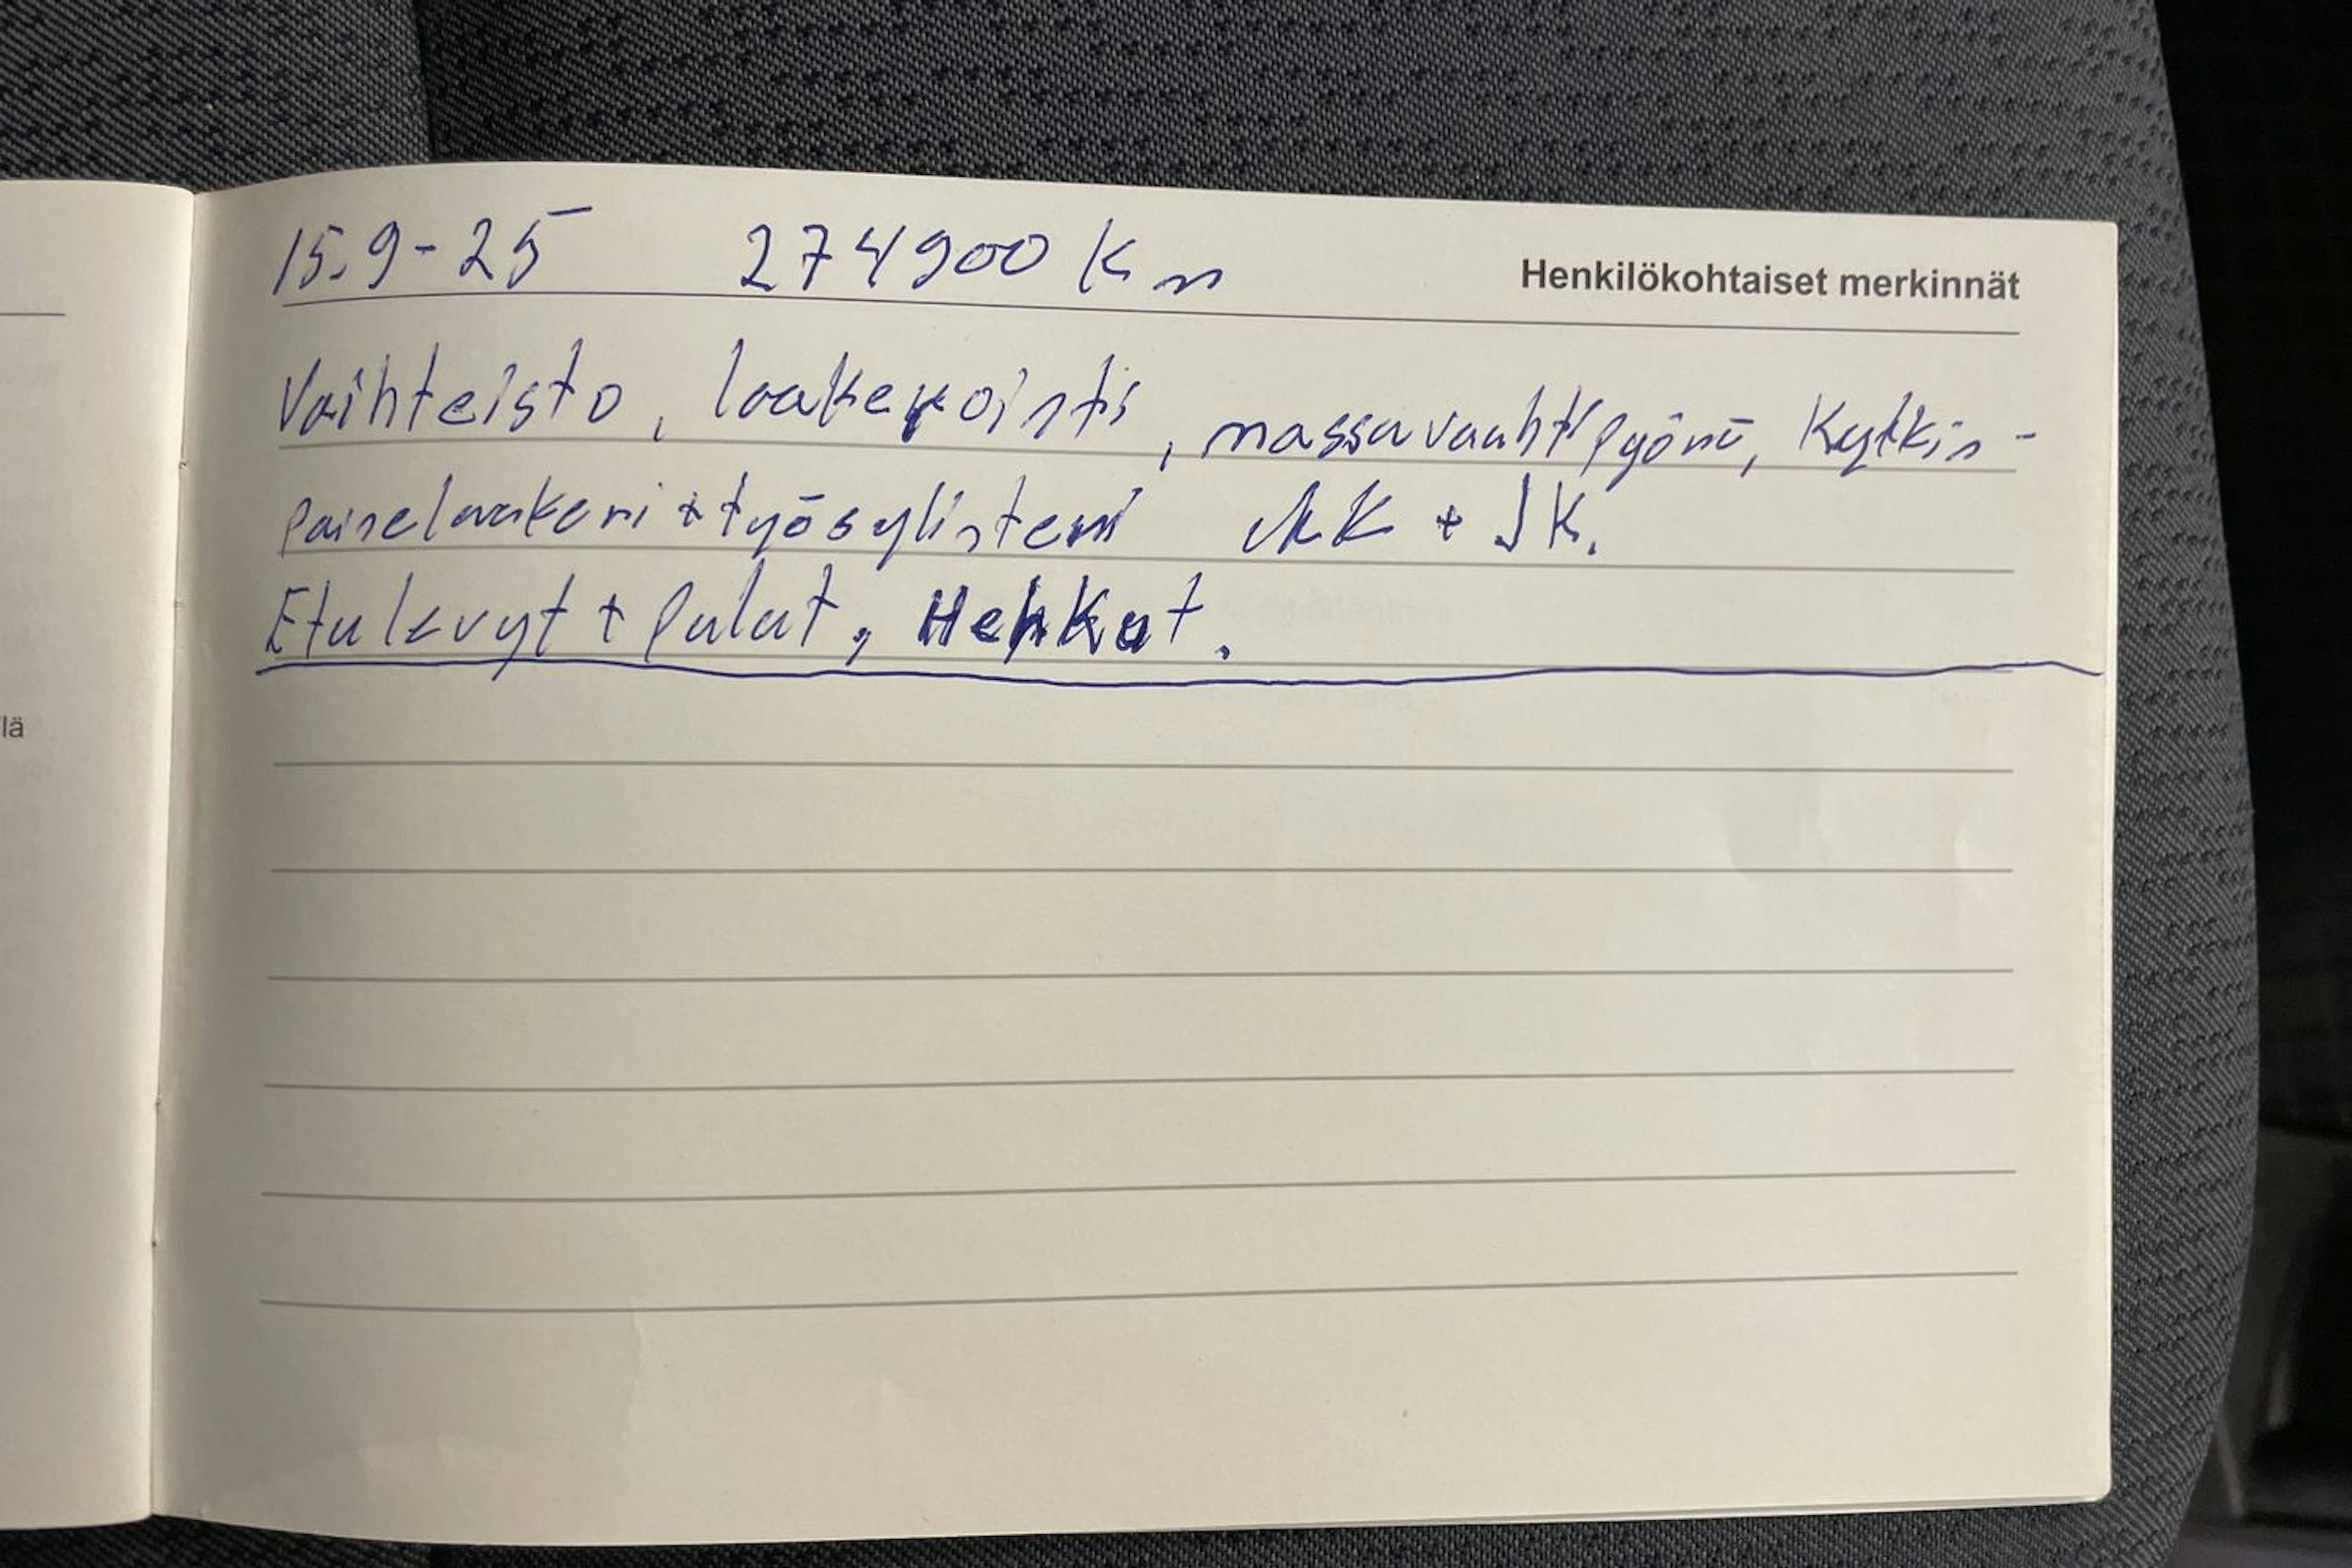 15.9-25 274900 Km
Henkilökohtaiset merkinnät
Vaihteisto, laakerointi, massavauhtipyörä, Kytkin-
painelaakeri + työsylinteri MK + JK.
Etulevyt + Palat, Hehkut.
lä